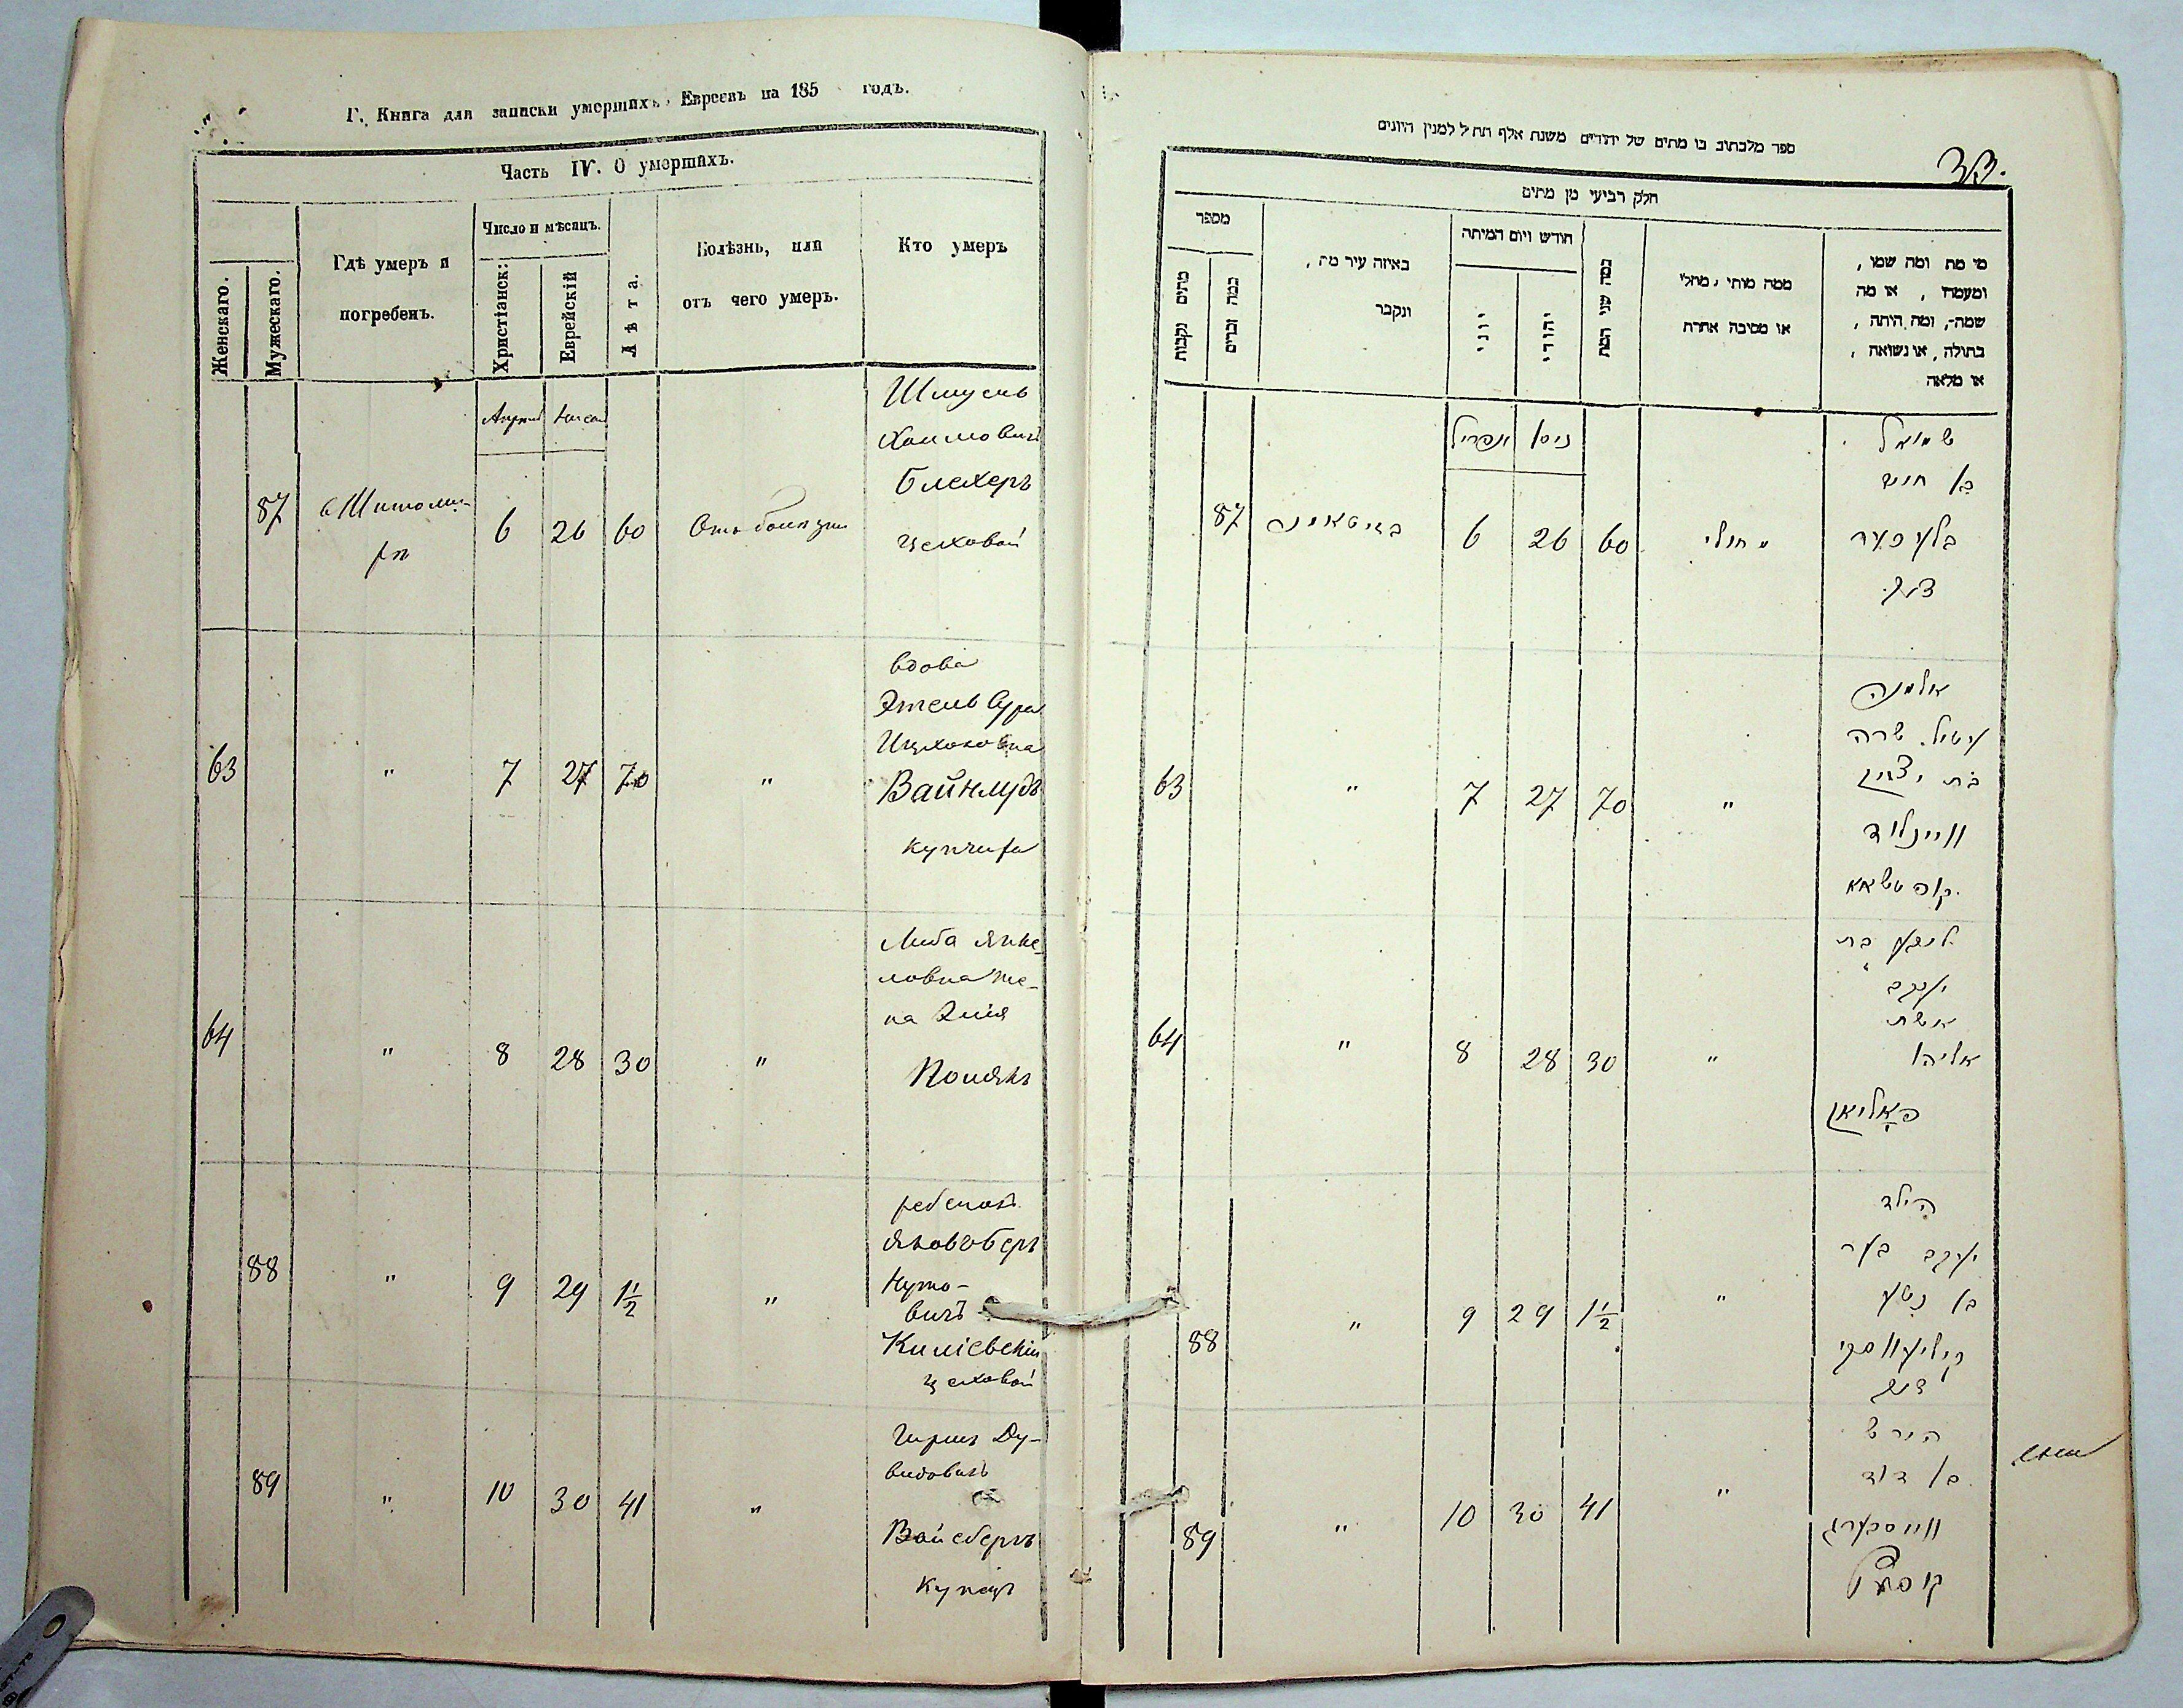 Г. Книга для записки умершихъ Евреевъ на 185 годъ.
Часть IV. О умершихъ.
Женскаго.
Мужескаго.
Гдѣ умеръ и
погребенъ.
Число и мѣсяцъ.
Христіанск:
Еврейскій
Лѣта.
Болѣзнь, или
отъ чего умеръ.
Кто умеръ
Апрель
Нисан
Шмуель
Хаимовичъ
Блехеръ
цеховой
87
въ Житоми-
рѣ
6
26
60
Отъ болезни
вдова
Этель Сура
Ицхоковна
Вайнлудъ
купчиха
63
"
7
27
70
"
Либа Янке-
ловна же-
на Элія
Полякъ
64
"
8
28
30
"
ребенокъ
Яковъ Беръ
Нуто-
вичъ
Киліевскій
цеховой
88
"
9
29
1 1/2
"
Гиршъ Ду-
видовичъ
Вайсбергъ
купецъ
89
"
10
30
41
"
ספר מלכתוב בו מתים של יהודים משנת אלף תת״ל למנין היונים
חלק רביעי מן מתים
מספר
מתים נקבות
כמה זכרים
באיזה עיר מת,
ונקבר
חודש ויום המיתה
יוני
יהודי
כמה שני המת
ממה מותי, מחלי
או מסיבה אחרת
מי מת ומה שמו,
ומעמדו, או מה
שמה, ומה היתה,
בתולה, או נשואה,
או מלאה
אפריל
ניסן
שמואל
בן חיים
בלעכער
צעך
87
בזיטאמיר
6
26
60
מחולי
אלמנה
עטיל שרה
בת יצחק
וויינלוד
63
"
7
27
70
"
ליבע בת
יעקב
אשת
אליהו
פאליאק
64
"
8
28
30
"
הילד
יעקב בער
בן נטע
קיליעווסקי
צעך
88
"
9
29
1 1/2
"
הירש
בן דוד
ווייסבערג
89
"
10
30
41
"